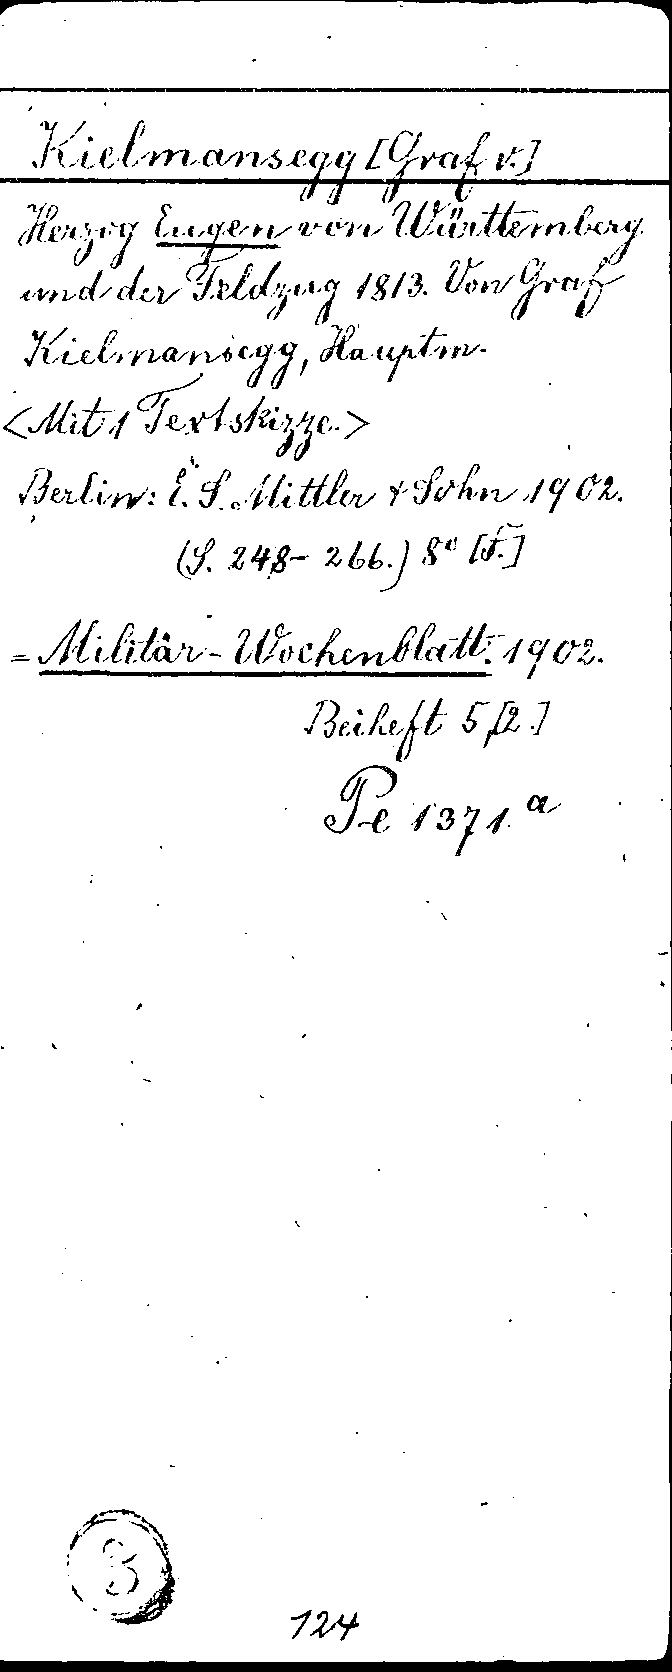 Kielmansegg [Graf v.]
Herzog Eugen von Württemberg
und der Feldzug 1813. Von Graf
Kielmansegg, Hauptm.
<Mit 1 Textskizze.>
Berlin: E. S. Mittler & Sohn 1902.
(S. 248-266.) 8° [F.]
= Militär-Wochenblatt. 1902.
Beiheft 5,[2.]
Pe 1371.a
3
124